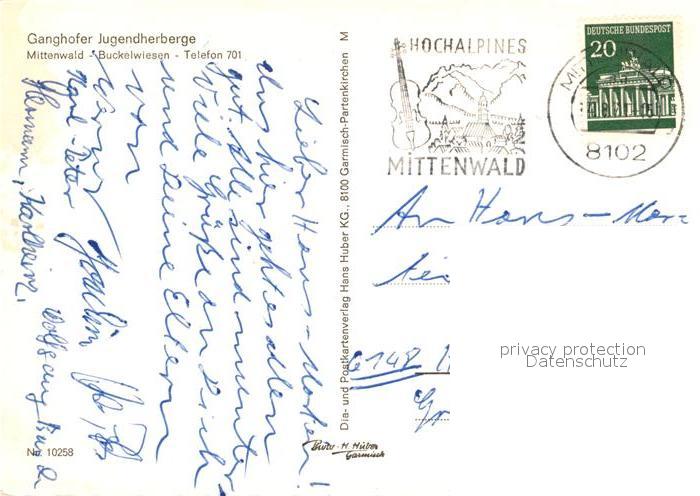 Ganghofer Jugendherberge
Mittenwald - Buckelwiesen - Telefon 701
Lieber Hans-Martin!
Uns hier geht es allen
gut. Alle sind munter.
Viele Grüße an Dich
und Deine Eltern
von
Werner
Karl-Peter
Hermann, Karlheinz,
Wolfgang
Nr. 10258
Dia- und Postkartenverlag Hans Huber KG., 8100 Garmisch-Partenkirchen M
Foto-H. Huber
Garmisch
HOCHALPINES
MITTENWALD
DEUTSCHE BUNDESPOST
20
MITTENWALD
8102
An Hans-Mar
6148
privacy protection
Datenschutz